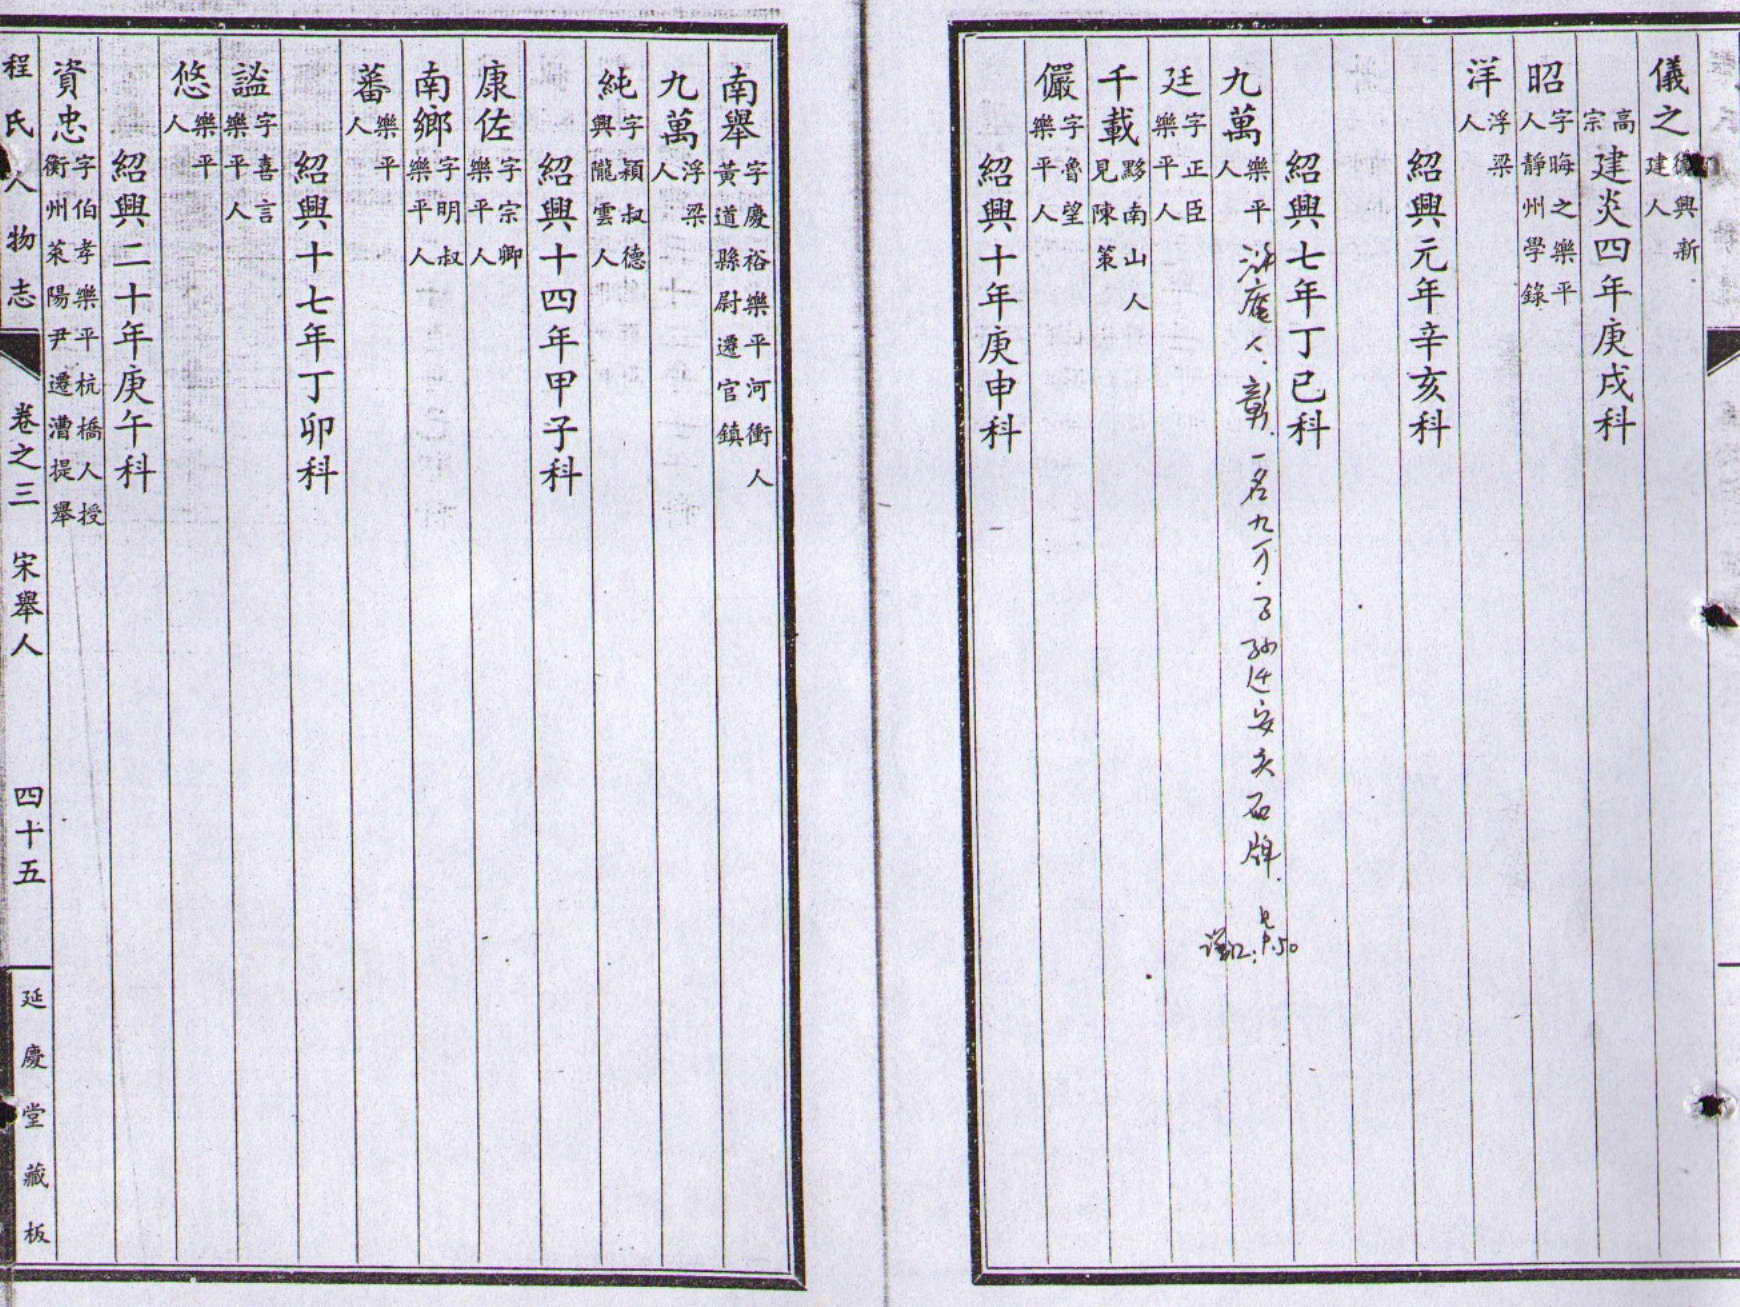 儀之 德興新建人
高宗 建炎四年庚戌科
昭 字晦之樂平人靜州學錄
洋 浮梁人
紹興元年辛亥科
紹興七年丁巳科
九萬 樂平人
人彰一名九万子孙迁安庆石牌
P.50
廷 字正臣樂平人
千載 黟南山人見陳策
儼 字魯望樂平人
紹興十年庚申科
南舉 字慶裕樂平河衝人黃道縣尉遷官鎮
九萬 浮梁人
純 字穎叔德興隴雲人
紹興十四年甲子科
康佐 字宗卿樂平人
南鄉 字明叔樂平人
蕃 樂平人
紹興十七年丁卯科
謐 字喜言樂平人
悠 樂平人
紹興二十年庚午科
資忠 字伯孝樂平杭橋人授衡州萊陽尹遷漕提舉
程氏人物志 卷之三 宋舉人 四十五 延慶堂藏板